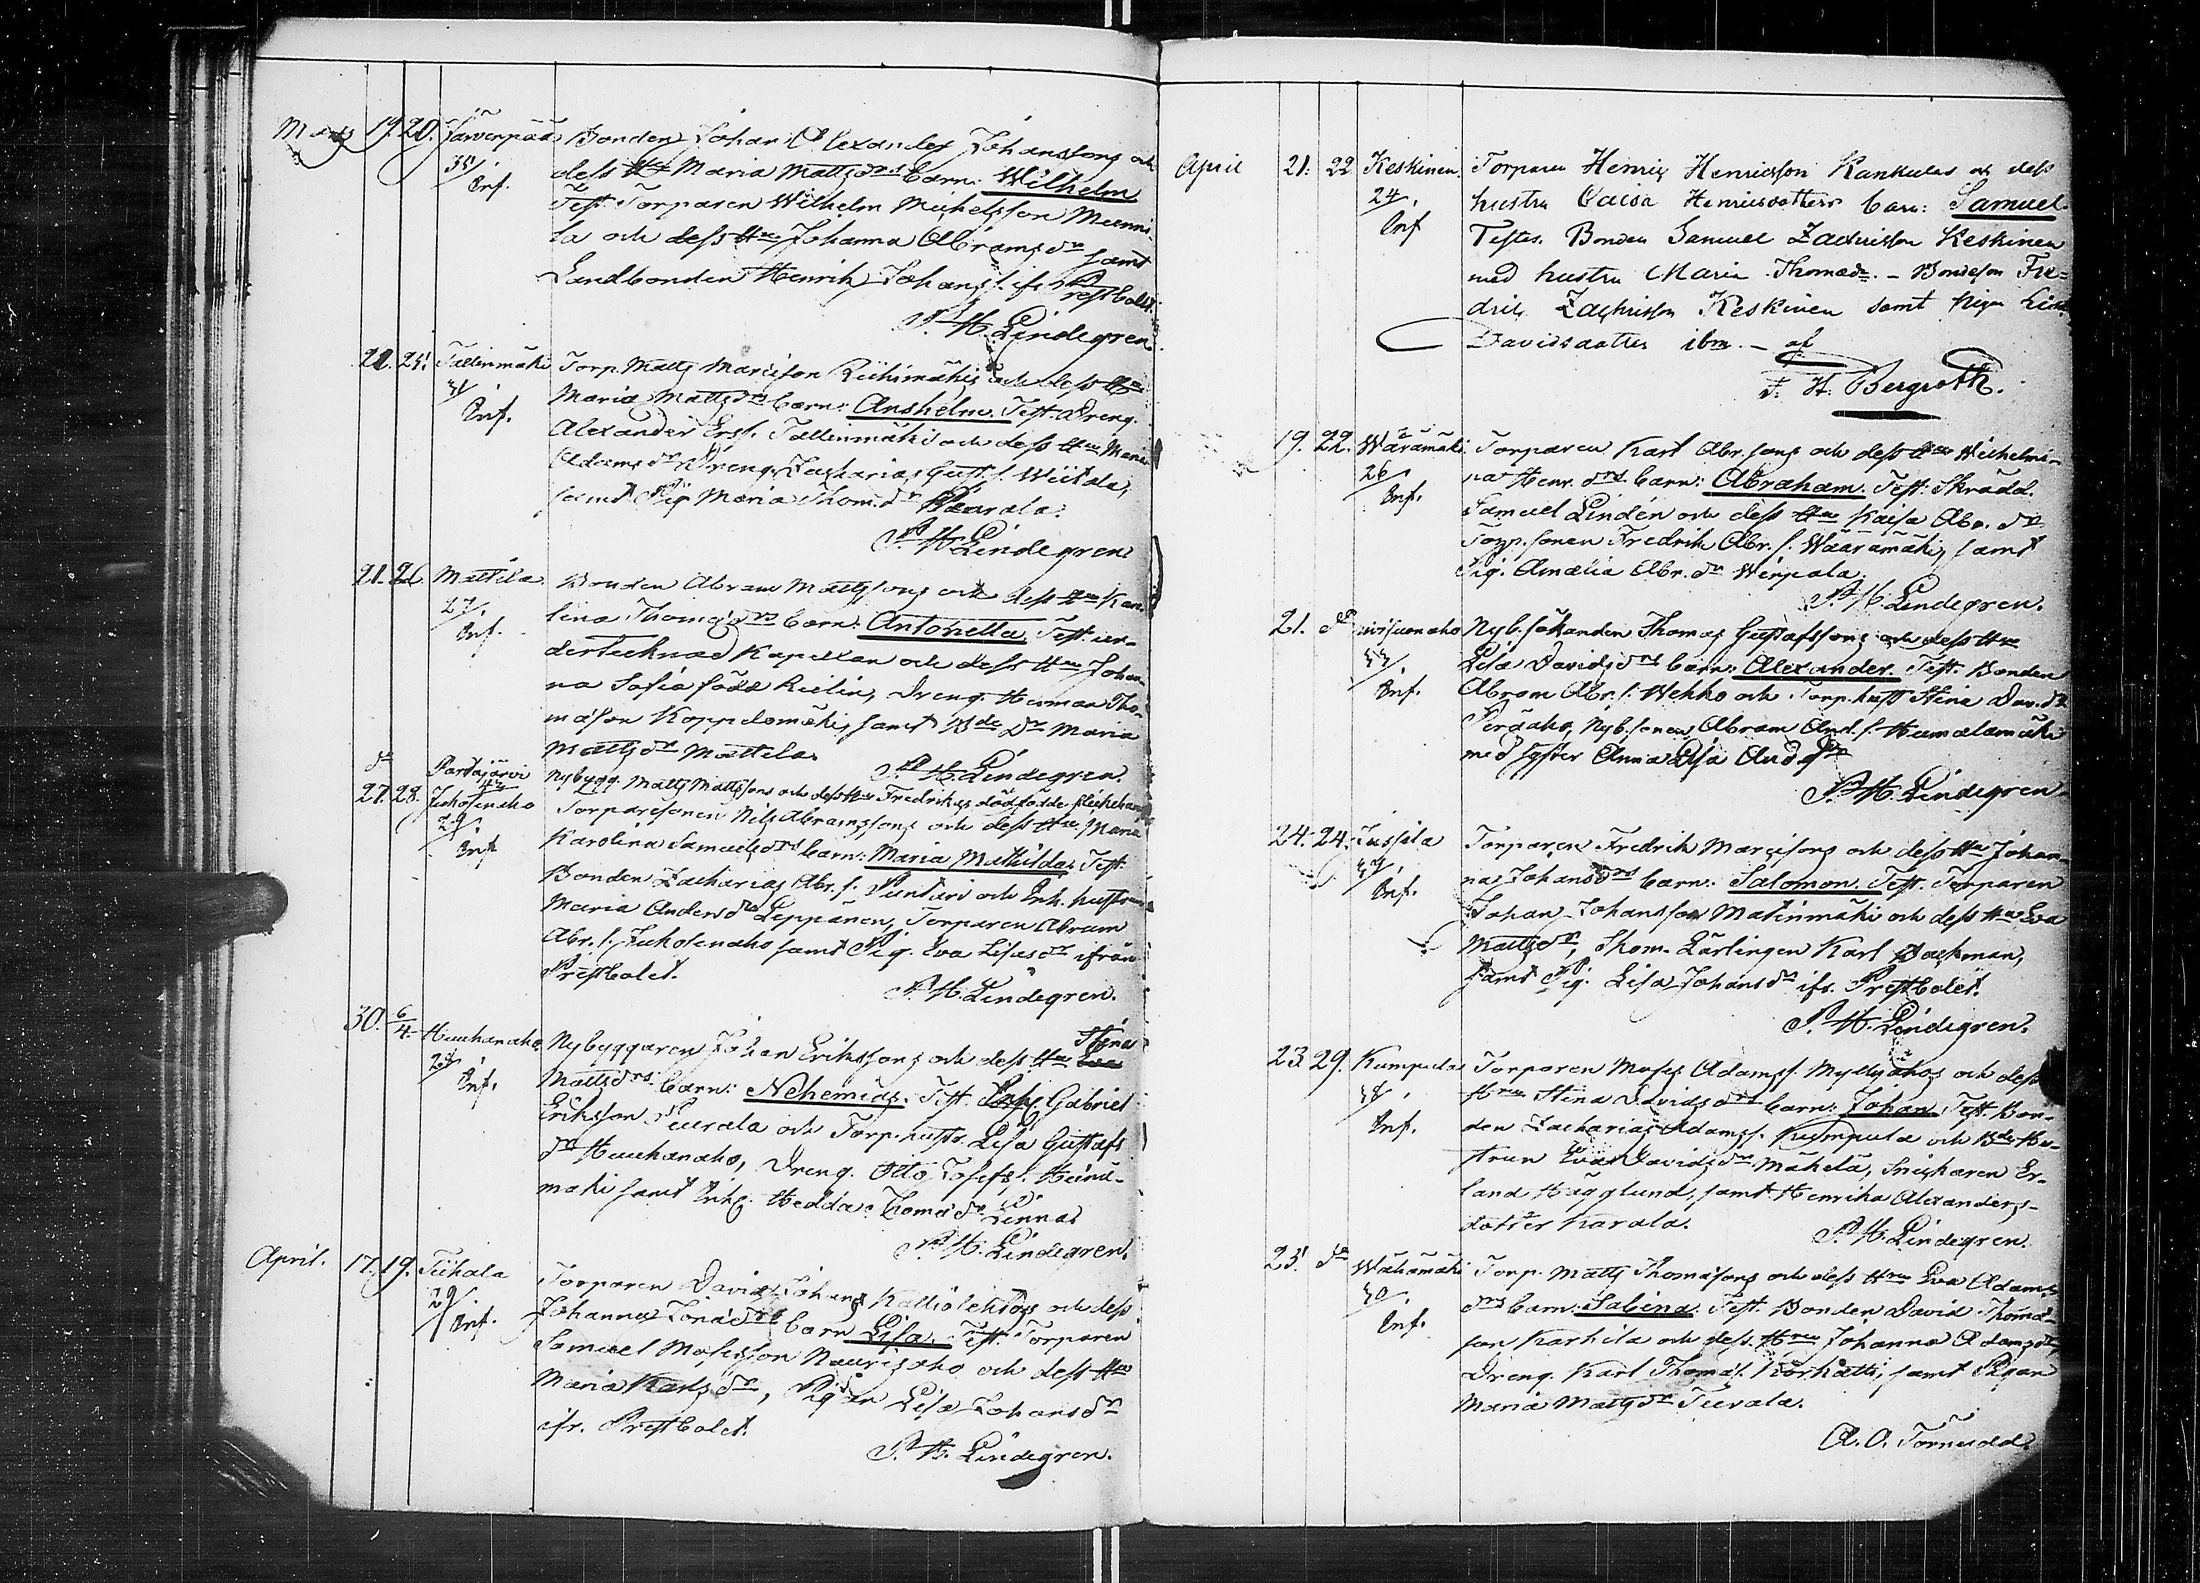 Mars 19. 20. Järvenpää Bonden Johan Alexander Johanssons och
35/ dess Hu Maria Mattsdrs barn: Wilhelm
Inf. Test. Torparen Wilhelm Michelsson Menni-
la och dess Hu Johanna Abramsdr samt
Landbonden Henrik Johans s. ifr. Prestbolet.
P. H. Lindegren.
21. 25. Tallinmäki Torp. Matts Marcisson Riihimäkis och dess Hu
Inf. Maria Mattsdrs barn: Anshelm. Test. Dreng.
Alexander Ers s. Tallinmäki och dess Hu Maria
Adamsdr Dreng. Zacharias Gust. s. Wiitala,
samt Pig. Maria Thom.dr
P. H. Lindegren.
21. 26. Mattila Bonden Abram Mattssons och dess Hu Karo-
27/. lina Thomædrs barn: Antonetta. Test. un-
Inf. dertecknad Kapellan och dess Hu Johan-
na Sofia född Dreng. Herman Tho-
mæson Koppelomäki, samt Bde Dr Maria
Mattsdr Mattila.
P. H. Lindegren.
do Pardajärvi Nybygg. Matts Mattssons och dess Hu Fredrikas dödfödde flickebarn
27. 28. Juholenaho Torparesonen Nils Abramssons och dess Hu Maria
29/. Karolina Samuelsdrs barn: Maria Mathilda. Test.
Inf. Bonden Zacharias Abr. s. Puntari och Enk. hustrun
Maria Andersdr Leppänen, Torparen Abram
Abr. s. Juholenaho samt Pig. Eva Lisasdr ifrån
Prestbolet.
P. H. Lindegren.
30. 6/4. Huuhanaho Nybyggaren Johan Erikssons och dess Hu Eva Stina
28/ Mattsdrs barn: Nehemias. Test. Gabriel
Inf. Eriksson Peurala och Torp. hustr. Lisa Gustafs
dr Huuhanaho, Dreng. Otto Josefs s. Heinä-
mäki samt Enk. Hedda Thomædr Linna
P. H. Lindegren.
April. 17. 19. Tiihala Torparen David Johans Kalliolehtos och dess
29/ Johanna Jonædrs barn Lisa. Test. Torparen
Inf. Samuel Mosesson Naurisaho och dess Hu
Maria Karlsdr, Pigan Lisa Johansdr
ifr. Prestbolet.
P. H. Lindegren.
April 21. 22 Keskinen. Torparen Henric Henricsson Kankulas och dess
24/. hustru Caisa Henricsdotters barn: Samuel.
Inf Testes. Bonden Samuel Zachrisson Keskinen
med hustru Maria Thomædr. – Bondeson Fre-
dric Zachrisson Keskinen samt Pigan Lisa
Davidsdotter ibm. – af
F. H. Bergroth.
19. 22. Wäärämäki Torparen Karl Abr. sons och dess Hu Wilhelmi-
26/ na Henr. drs. barn: Abraham. Test: Skrädd.
Inf. Samuel Lindén och dess Hu Kaisa Abr. dr
Torp. sonen Fredrik Abr. s. Wäärämäki, samt
Pig. Amalia Abr. dr Wirpola.
P. H. Lindegren.
21. do Nyb. sökanden Thomas Gustafssons och dess Hu
Inf. Lisa Davidsdrs barn: Alexander. Test. Bonden
Abram Abr. s. Wehko och Torp. hust. Stina Dav. dr
Peräaho, Nyb. sonen Abram And. s. Humalamäki
med syster Anna Lisa Andsdr
P. H. Lindegren.
24. 24. Jussila Torparen Fredrik Marcisons och dess Hu Johan-
Inf. na Johansdrs barn: Salomon. Test. Torparen
Johan Johansson Matinmäki och dess Hu Eva
Mattsdr, Skom. Lärlingen Karl Backman,
samt Pig. Lisa Johansdr ifr. Prestbolet.
P. H. Lindegren.
23. 29. Kumpula Torparen Moses Adams s. Myllyahos och dess
Inf. Hru Stina Davidsdrs barn: Johan. Test. Bon-
den Zacharias Adams s. Kumpula och Bde Hu-
strun Eva Davidsdr Mäkelä, Snickaren Er-
land Hägglund, samt Henrika Alexanders-
dotter Karala.
P. H. Lindegren.
25. do Wähämäki Torp. Matts Thomæsons och dess Hru Eva Adams
30/. drs barn: Sabina. Test. Bonden David Thomæ-
Inf. son Karhila och dess Hru Johanna Adamsdr,
Dreng. Karl Thomæs. Korkatti, samt Pigan
Maria Mattsdr Tuorala.
A. O. Törnudd.